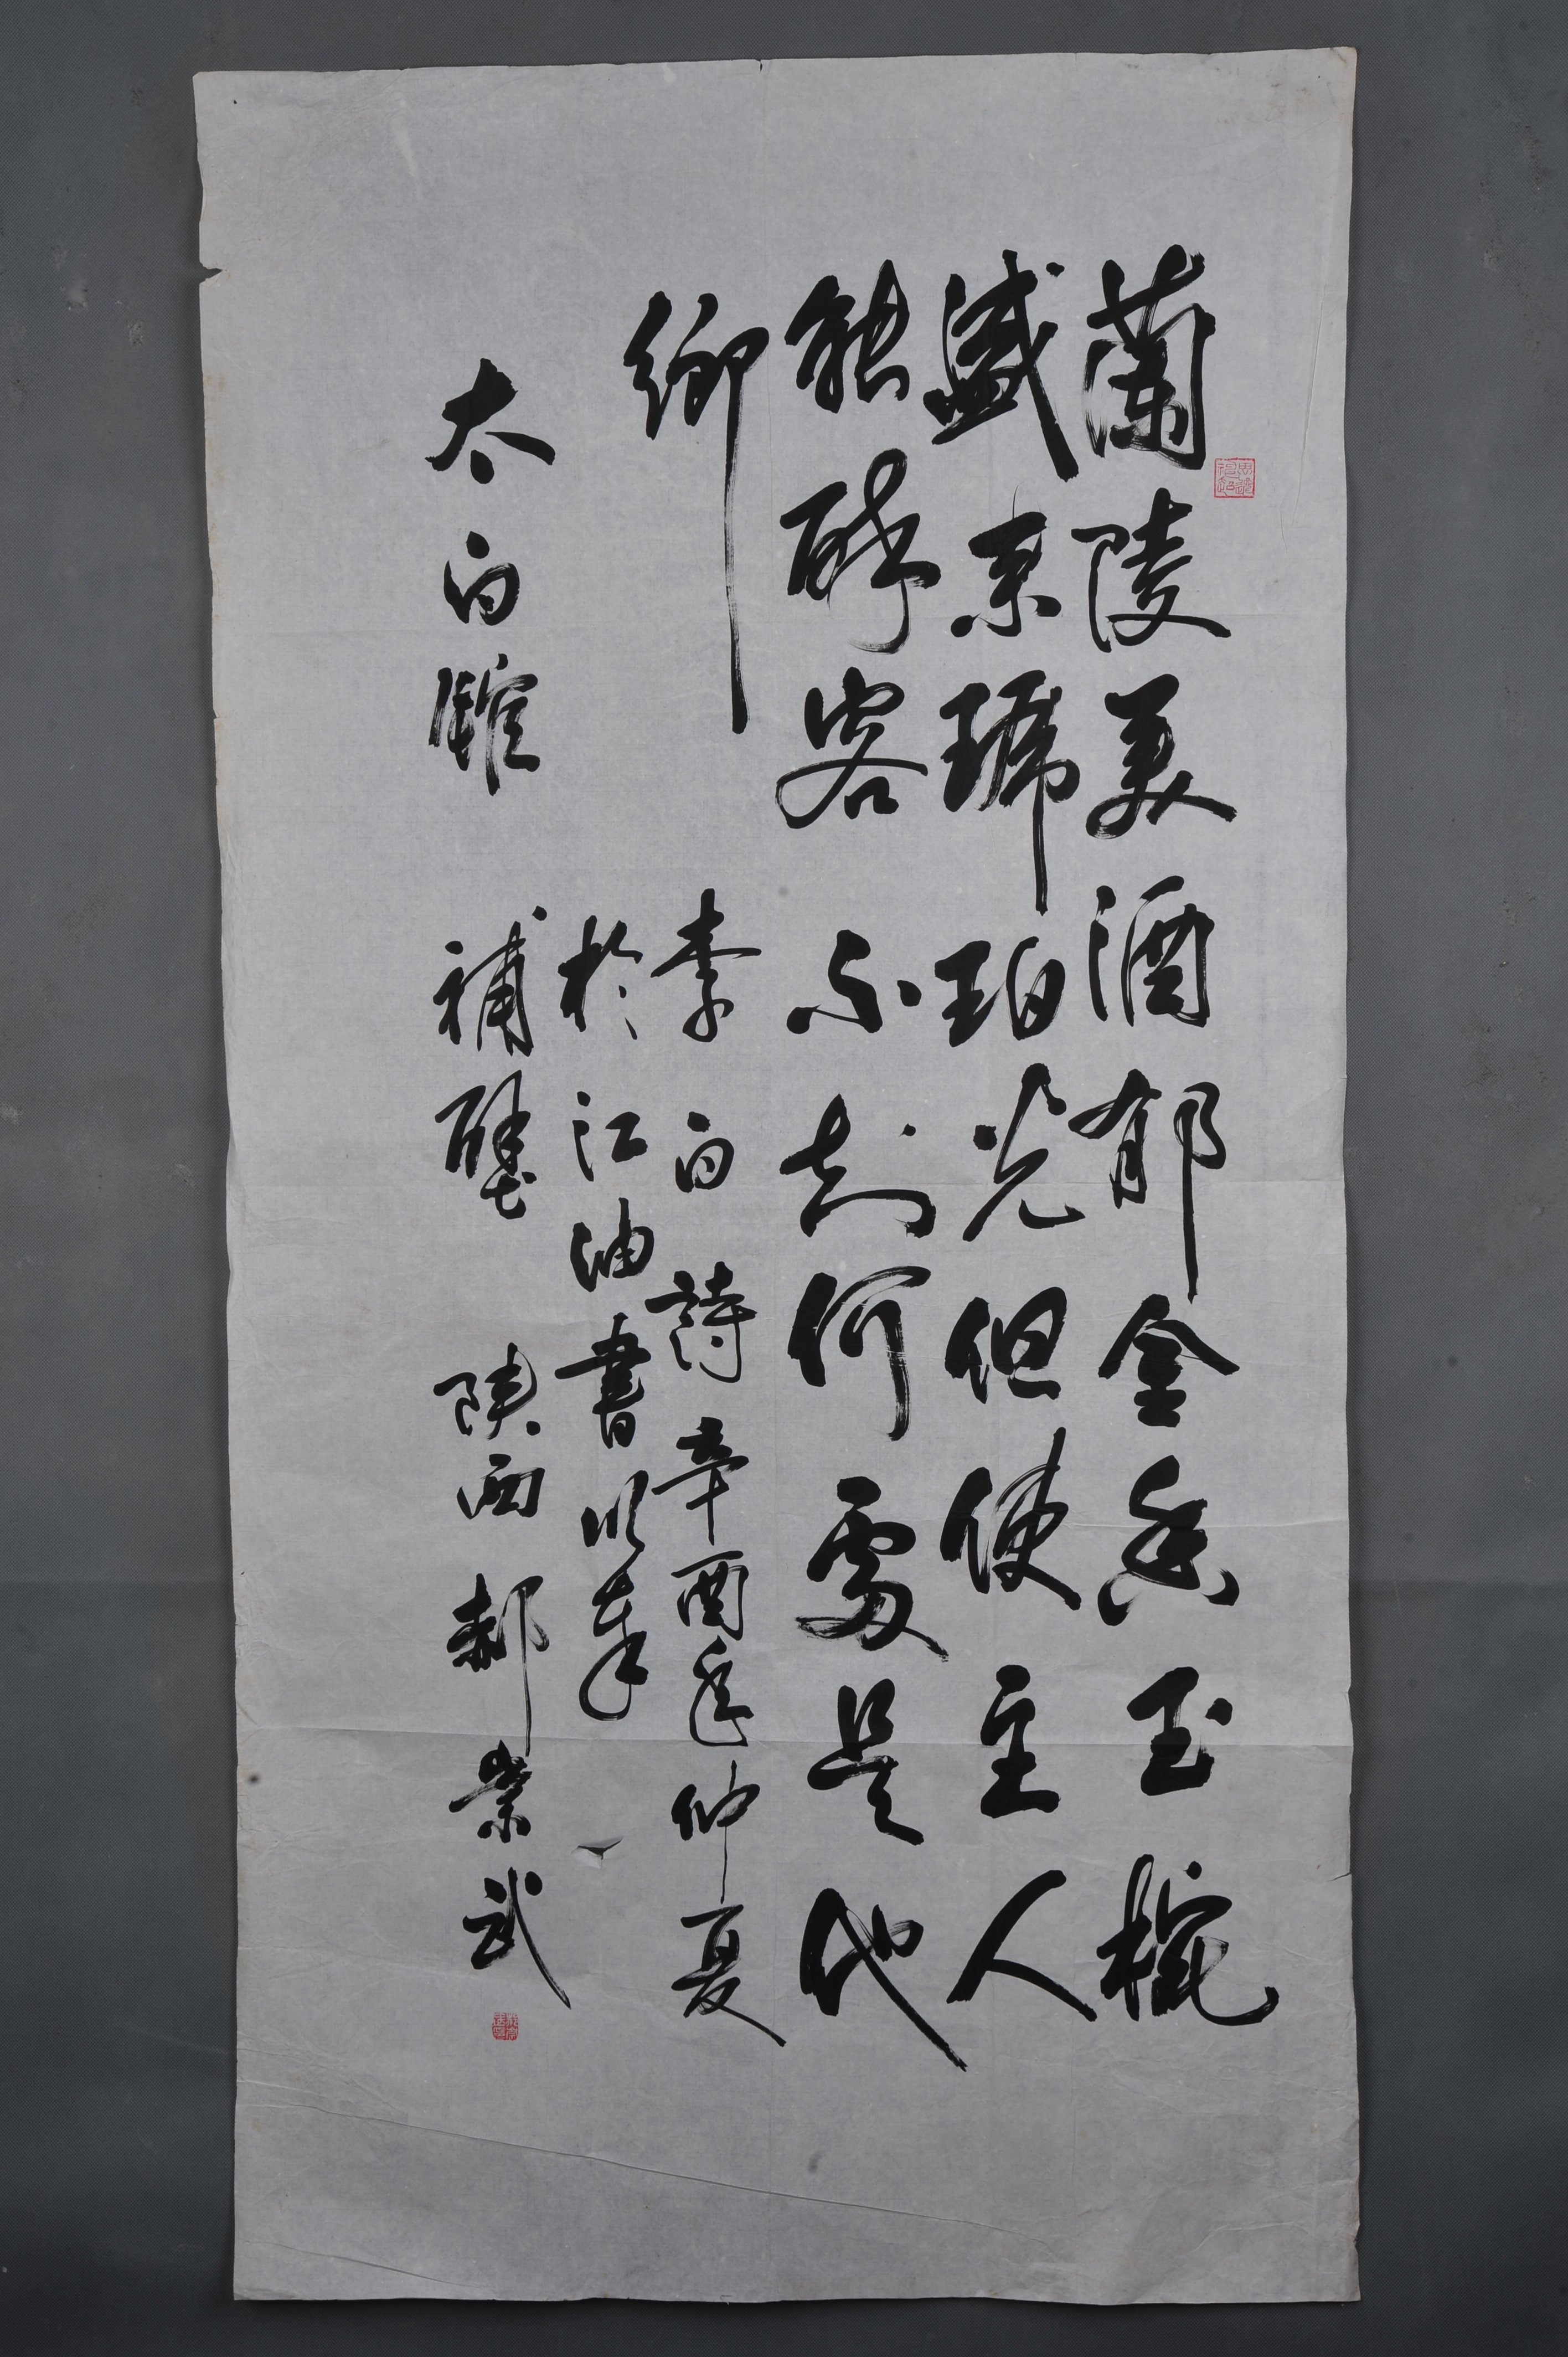 蘭陵美酒郁金香玉椀
盛来琥珀光但使主人
能醉客不知何處是他
鄉
李白詩辛酉年仲夏
於江油書以奉
太白館補壁陝西郝崇武